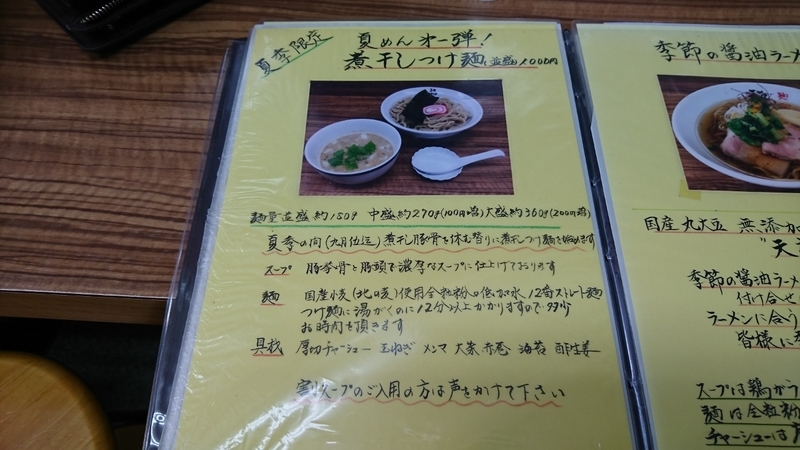 夏季限定
夏めん 才一弾!
煮干しつけ麺 並盛1000円
麺量 並盛約180g 中盛約270g(100円増) 大盛約360g(200円増)
夏季の間(九月位迄)煮干し豚骨を休む替りに煮干しつけ麺を始めます
スープ 豚拳骨と豚頭で濃厚なスープに仕上げております
麺 国産小麦(北の麦)使用全粒粉入り低加水12番ストレート麺
つけ麺に湯がくのに12分以上かかりますので多少
お時間を頂きます
具材 厚切チャーシュー 玉ねぎ メンマ 大葉 赤巻 海苔 酢生姜
割スープのご入用の方は声をかけて下さい
季節の醤油ラーメ
国産丸大豆 無添加
"天
季節の醤油ラーメ
付け合せ
ラーメンに合う
皆様に
スープは鶏がラ
麺は全粒粉
チャーシューは